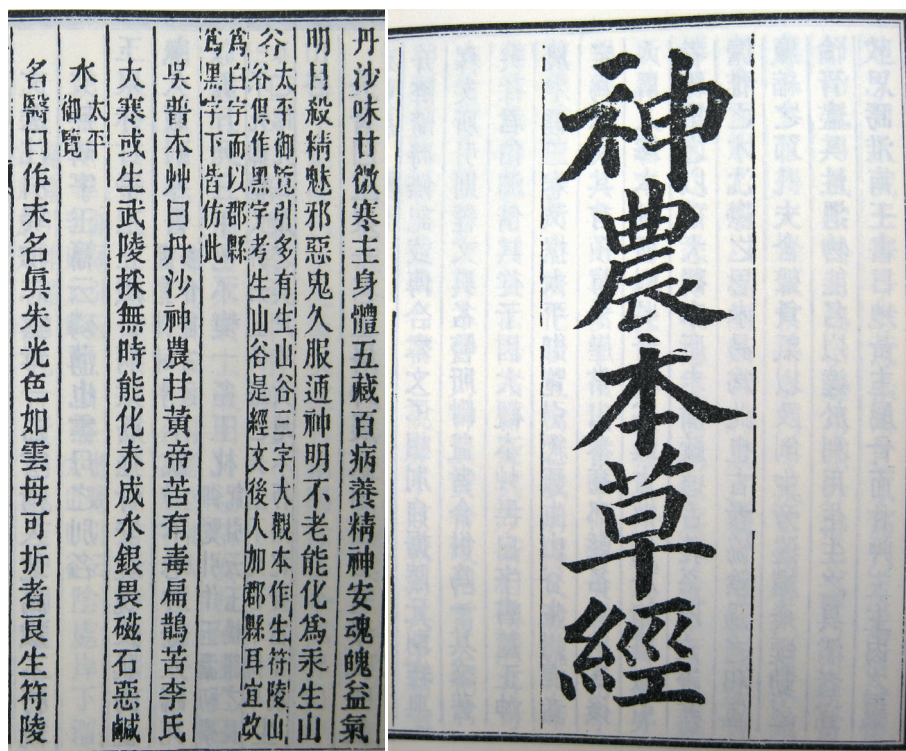 神農本草經
丹沙味甘微寒主身體五藏百病養精神安魂魄益氣
明目殺精魅邪惡鬼久服通神明不老能化爲汞生山
谷
太平御覽引多有生山谷三字大觀本作生符陵山
谷俱作黑字考生山谷是經文後人加郡縣耳宜改
爲白字而以郡縣
爲黑字下皆仿此
吳普本艸曰丹沙神農甘黃帝苦有毒扁鵲苦李氏
大寒或生武陵採無時能化未成水銀畏磁石惡鹹
水
太平
御覽
名醫曰作末名眞朱光色如雲母可折者良生符陵